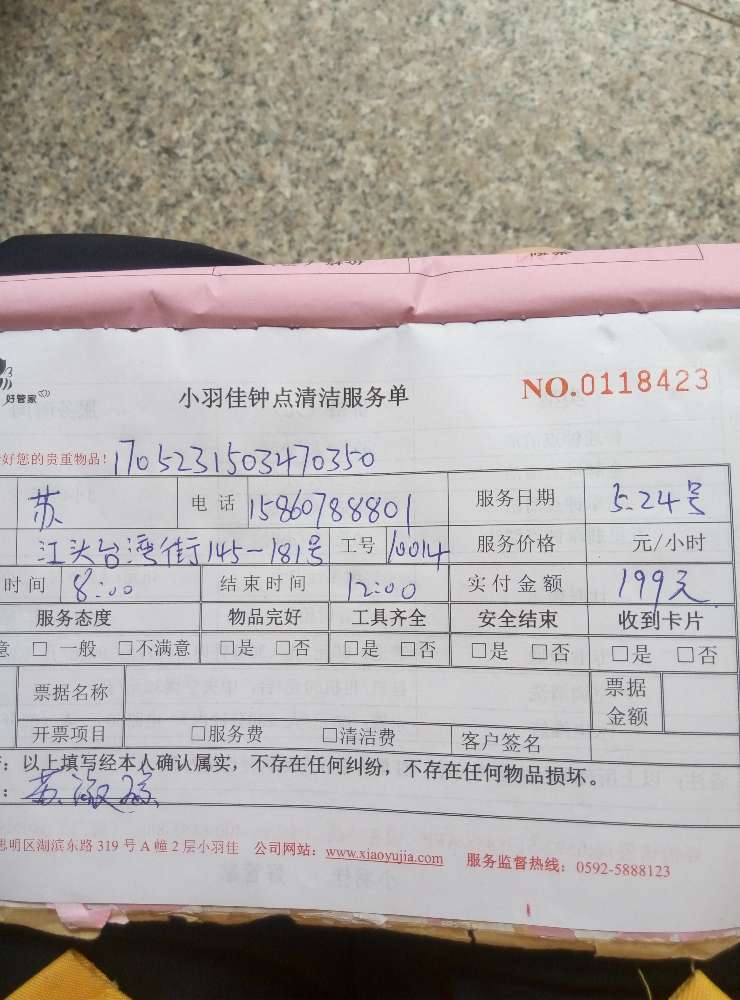 好管家
小羽佳钟点清洁服务单
NO.0118423
好您的贵重物品! 1705231503470350
苏 电话 15860788801 服务日期 5.24号
江头台湾街145-181号 工号 10014 服务价格 元/小时
时间 8:00 结束时间 12:00 实付金额 199元
服务态度 物品完好 工具齐全 安全结束 收到卡片
意 □ 一般 □不满意 □是 □否 □是 □否 □是 □否 □是 □否
票据名称 票据金额
开票项目 □服务费 □清洁费 客户签名
:以上填写经本人确认属实,不存在任何纠纷,不存在任何物品损坏。
: 苏
思明区湖滨东路 319 号 A 幢 2 层小羽佳 公司网站:www.xiaoyujia.com 服务监督热线:0592-5888123